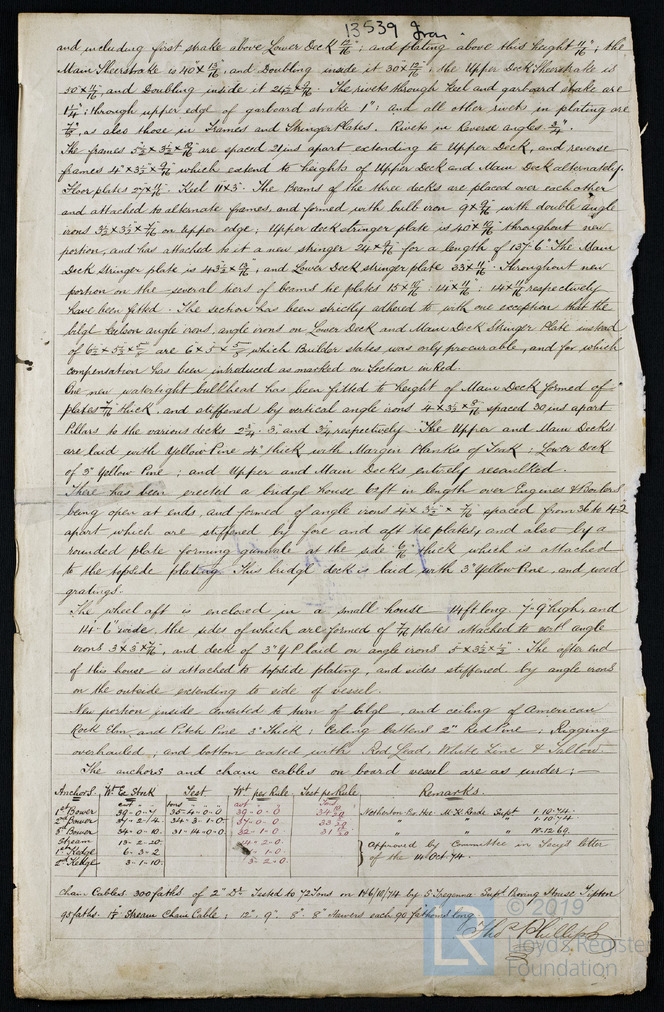 13539 Iron
and including first strake above Lower Deck 12/16"; and plating above this height 11/16"; the
Main Sheerstrake is 40" x 13/16", and Doubling inside it 30 x 12/16", the Upper Deck Sheerstrake is
50 x 11/16, and Doubling inside it 24½ x 9/16. The rivets through Keel and garboard strake are
1¼"; through upper edge of garboard strake 1": And all other rivets in plating are
7/8", as also those in Frames and Stringer Plates. Rivets in Reverse angles ¾".
The frames 5½ x 3½ x 9/16 are spaced 21 ins apart extending to Upper Deck, and reverse
frames 4" x 3½ x 9/16 which extend to heights of Upper Deck and Main Deck alternately.
Floor plates 27 x 11/16. Keel 11 x 3. The Beams of the three decks are placed over each other
and attached to alternate frames, and formed with bulb iron 9 x 9/16 with double angle
irons 3½ x 3½ x 7/16 on upper edge; Upper deck stringer plate is 40 x 10/16 throughout new
portion, and has attached to it a new stringer 24 x 9/16 for a length of 137-6". The Main
Deck Stringer plate is 43½ x 12/16, and Lower Deck stringer plate 33 x 11/16. Throughout new
portion on the several tiers of beams tie plates 15 x 10/16; 14 x 11/16; 14 x 11/16 respectively
have been fitted. The section has been strictly adhered to with one exception that the
bilge keelson angle irons, angle irons on Lower Deck and Main Deck Stringer Plate instead
of 6½ x 5½ x 5/8 are 6 x 5 x 5/8 which Builder states was only procurable, and for which
compensation has been introduced as marked on Section in Red.
One new watertight bulkhead has been fitted to height of Main Deck formed of
plates 7/16 thick, and stiffened by vertical angle irons 4 x 3½ x 8/16 spaced 30 ins apart
Pillars to the various decks 2¾. 3. and 3¼ respectively. The Upper and Main Decks
are laid with Yellow Pine 4" thick with Margin Planks of Teak; Lower Deck
of 3" Yellow Pine; and Upper and Main Decks entirely recaulked.
There has been erected a bridge house ft in length over Engines & Boilers
being open at ends, and formed of angle irons 4 x 3½ x 7/16 spaced from 36 to 42
apart which are stiffened by fore and aft tie plates, and also by a
rounded plate forming gunwale at the side 6/16 thick which is attached
to the topside plating. This bridge deck is laid with 3" Yellow Pine, and wood
gratings.
The wheel aft is enclosed in a small house 14 ft long. 7-9 high, and
14-6" wide, the sides of which are formed of 7/16 plates attached to vertl angle
irons 3 x 3 x 7/16, and deck of 3" Y P laid on angle irons 5 x 3½ x ½. The after end
of this house is attached to topside plating, and sides stiffened by angle irons
on the outside extending to side of vessel.
New portion inside cemented to turn of bilge, and ceiling of American
Rock Elm and Pitch Pine 3" thick; Ceiling Battens 2" Red Pine; Rigging
overhauled, and bottom coated with Red Lead, White Zinc & Tallow
The anchors and chain cables on board vessel are as under:—
Anchors. Wt Ex Stock Test Wt per Rule Test per Rule Remarks.
1st Bower 39-0-7 35-4-0-0 39-0-0 34 Netherton Pro Hse M. K. Reade Supt 1-10-74.
2nd Bower 37-2-14 34-3-1-0 37-0-0 33 " " 1-10-74.
3rd Bower 34-0-10 31-14-0-0 32-1-0 31 " " 18-12-69.
Stream 13-2-20 14-2-0 Approved by Committee in Secy's letter
1st Kedge 6-3-2 -1-0 of the 14 Oct 74.
2nd Kedge 3-1-10 3-2-0
Chain Cables 300 faths of 2" Dr Tested to 72 Tons on 14/6/10/74 by S Tregenna Supt Proving House Tipton
95 faths. 1⅛ Stream Chain Cable; 12", 9", 8" 8" Hawsers each 90 fathoms long
Thos Phillips
© 2019
LR Lloyd's Register
Foundation